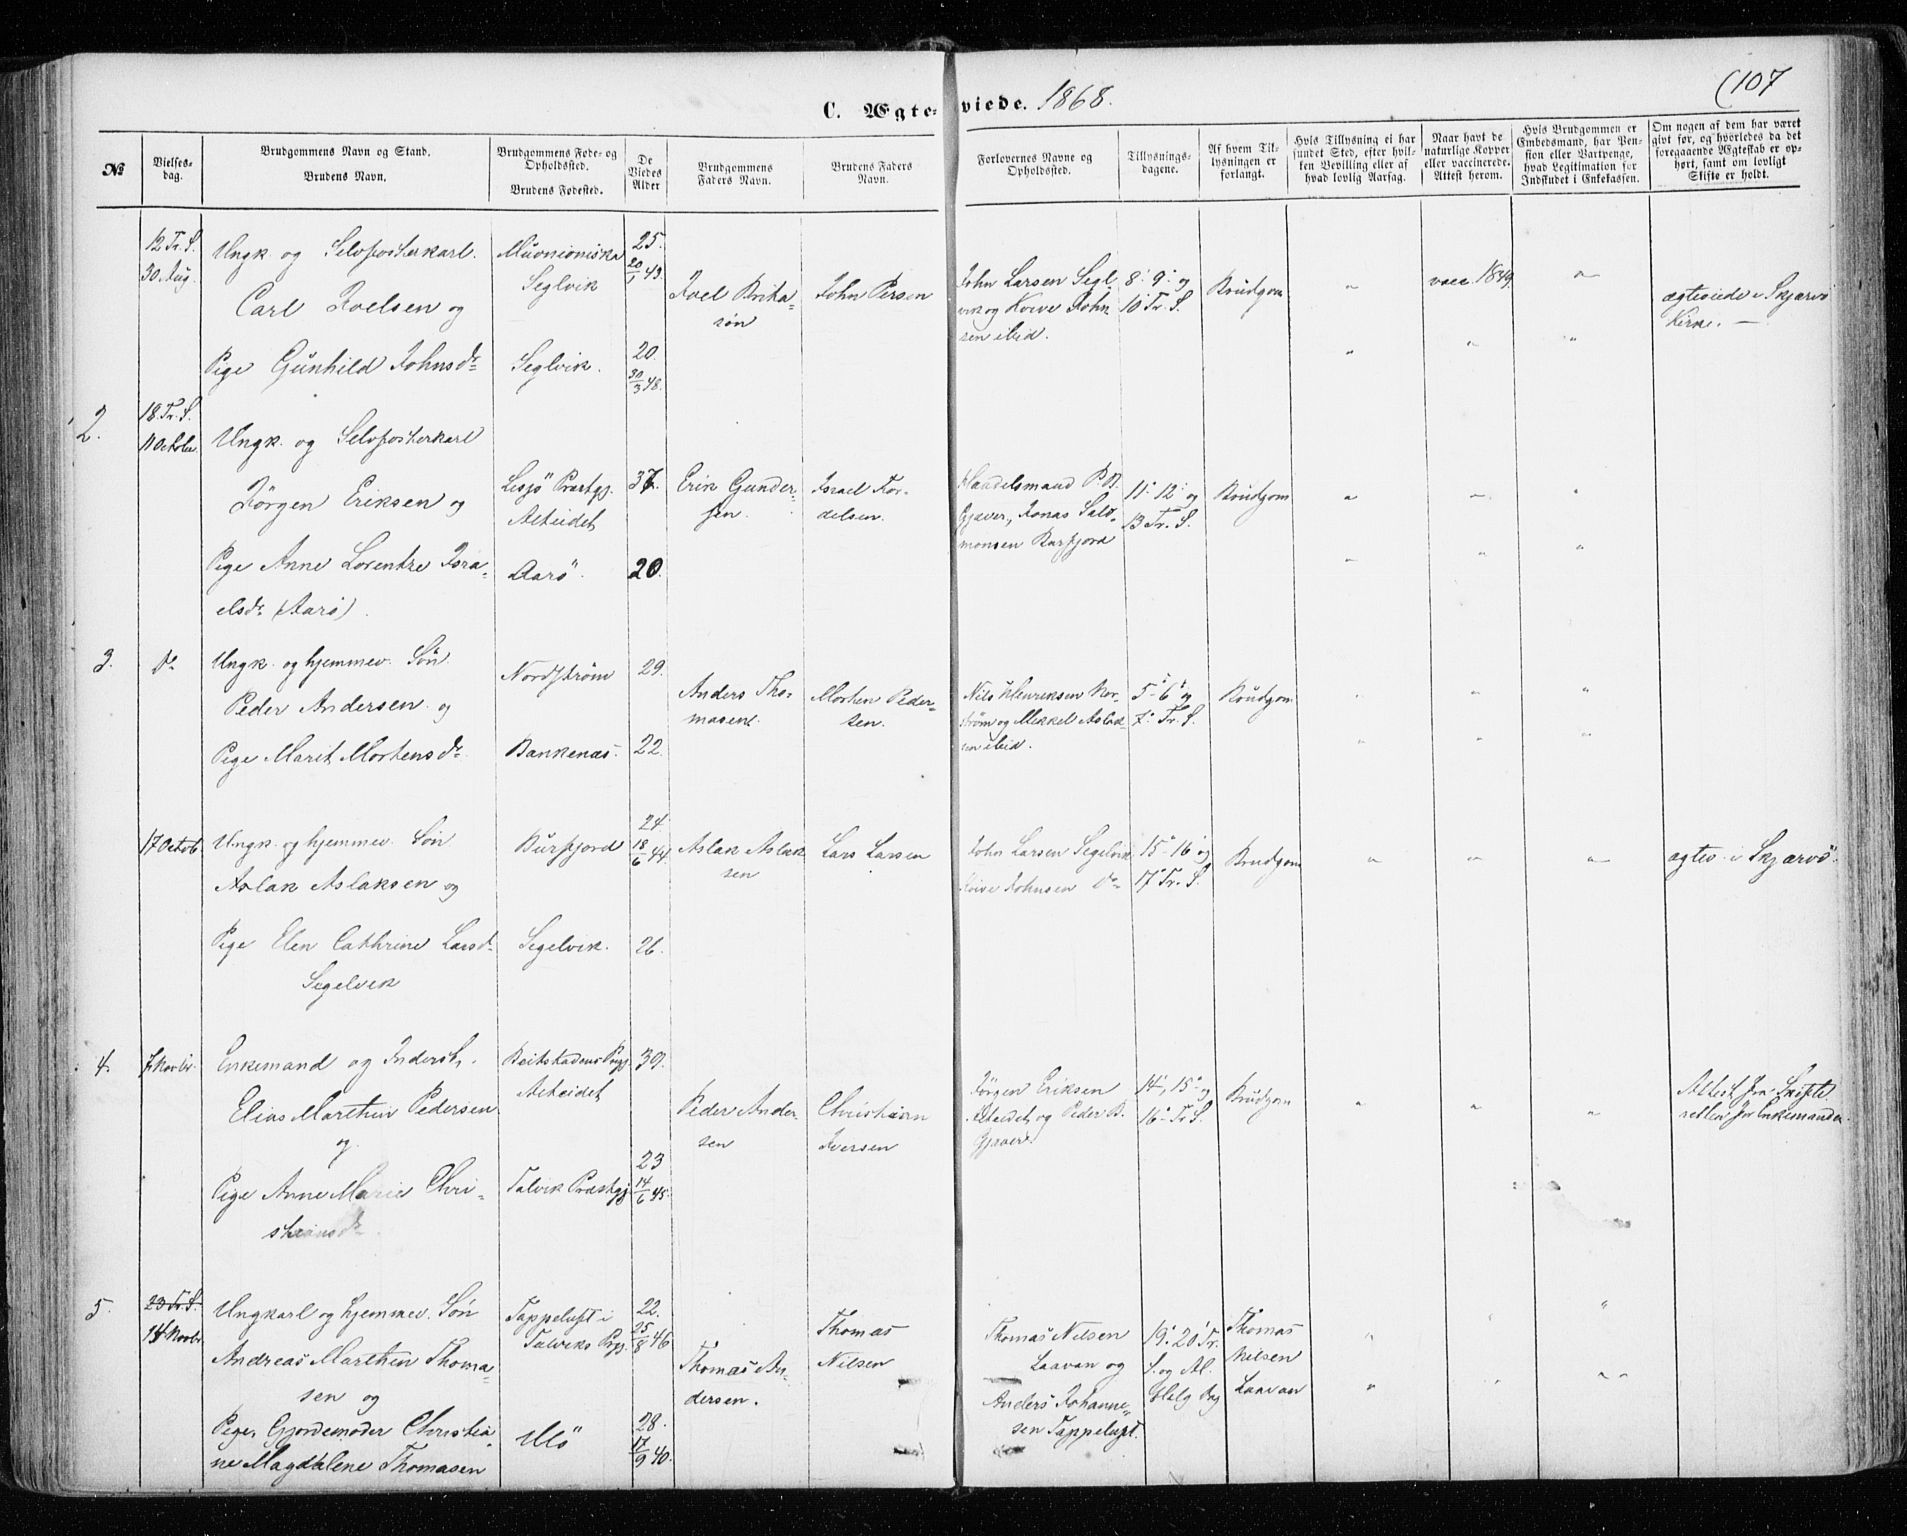 C. Ægte-viede. 1868.
(107
No
Vielses-
dag.
Brudgommens Navn og Stand.
Brudens Navn.
Brudgommens Føde- og
Opholdssted.
Brudens Fødested.
De
Viedes
Alder
Brudgommens
Faders Navn.
Brudens Faders
Navn.
Forlovernes Navne og
Opholdssted.
Tillysnings-
dagene.
Af hvem Til-
lysningen er
forlangt.
Hvis Tillysning ei har
fundet Sted, efter hvil-
ken Bevilling eller af
hvad lovlig Aarsag.
Naar havt de
naturlige Kopper
eller vaccinerede.
Attest herom.
Hvis Brudgommen er
Embedsmand, har Pen-
sion eller Vartpenge,
hvad Legitimation for
Indskudet i Enkekassen.
Om nogen af dem har været
givt før, og hvorledes da det
foregaaende Ægteskab er op-
hørt, samt om lovligt
Skifte er holdt.
12 Tr. S.
30 Aug.
Ungk. og Selvfosterkarl.
Carl Joelsen og
Pige Gunhild Johnsdr
Muonioniska
Seglvik
Seglvik.
25.
20/1 43.
20.
30/3 48.
Joel Brita-
søn
John Persen
John Larsen Segl-
vik og Koive John-
sen ibid.
8. 9. og
10 Tr. S.
Brudgom
"
vacc. 1849
"
ægteviede i Skjærvø
Kirke. —
2.
18. Tr. S.
11 October
Ungk. og Selvfosterkarl
Jørgen Eriksen og
Pige Anne Lorentze Isra-
elsdr (Aarø).
Lesjø Præstgj.
Alteidet
Aarø.
37.
20.
Erik Gunder-
sen.
Israel For-
delsen.
Handelsmand P. B.
Gjæver, Jonas Salo-
monsen Burfjord
11. 12. og
13 Tr. S.
Brudgom
3.
do
Ungk. og hjemmev. Søn
Peder Andersen og
Pige Maret Mortensdr
Nordstrøm
Bankenæs.
29.
22.
Anders Tho-
masen.
Morten Peder-
sen.
Nils Henriksen Nor-
strøm og Mikkel Aslak-
sen ibid.
5. 6. og
7. Tr. S.
Brudgom
17 Octob.
Ungk. og hjemmev. Søn
Aslak Aslaksen og
Pige Elen Cathrine Larsdr
Segelvik
Burfjord
Segelvik.
24
18/6 44.
26.
Aslak Aslak-
sen
Lars Larsen
John Larsen Segelvik
Koive Johnsen do
15. 16 og
17 Tr. S.
Brudgom
ægtev. i Skjærvø.
4.
7 Novbr.
Enkemand og Inderst,
Elias Marthin Pedersen
og
Pige Anne Marie Chri-
stiansdr
Beitstadens Prgj.
Alteidet
Talvik Præstgj.
39.
23
14/6 45.
Peder Ander-
sen
Christian
Iversen
Jørgen Eriksen
Alteidet og Peder B.
Gjæver.
14, 15. og
16. Tr. S.
Brudgom
Attest fra Skifte-
retten for Enkemanden
5.
23 Tr. S.
14 Novbr.
Ungkarl og hjemmev. Søn
Andreas Marthin Thoma-
sen og
Pige, Gjordemoder Christia-
ne Magdalene Thomasen
Tappeluft i
Talviks Prgj.
Ulø
22.
25/8 46
28.
17/9 40.
Thomas An-
dersen.
Thomas
Nilsen
Thomas Nilsen
Laavan og
Anders Johanne-
sen Tappeluft.
19. 20. Tr.
S. og Al.
Helg. Dag
Thomas
Nilsen
Laavan